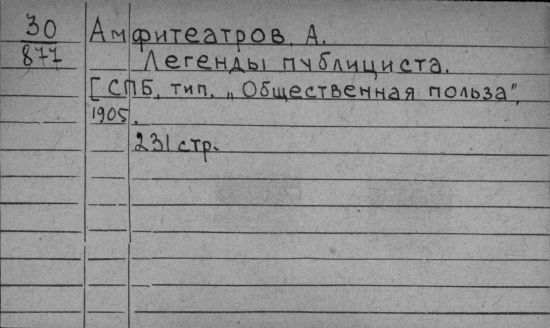 30
877
Амфитеатров, А.
Легенды публициста.
[СПБ, тип. „Общественная польза”,
1905.
231 стр.